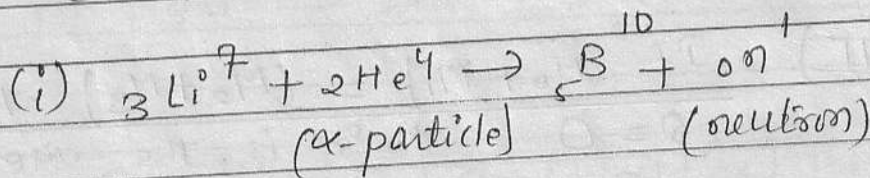 (i) ₃Li⁷ + ₂He⁴ → ₅B¹⁰ + ₀n¹
(α-particle) (neutron)